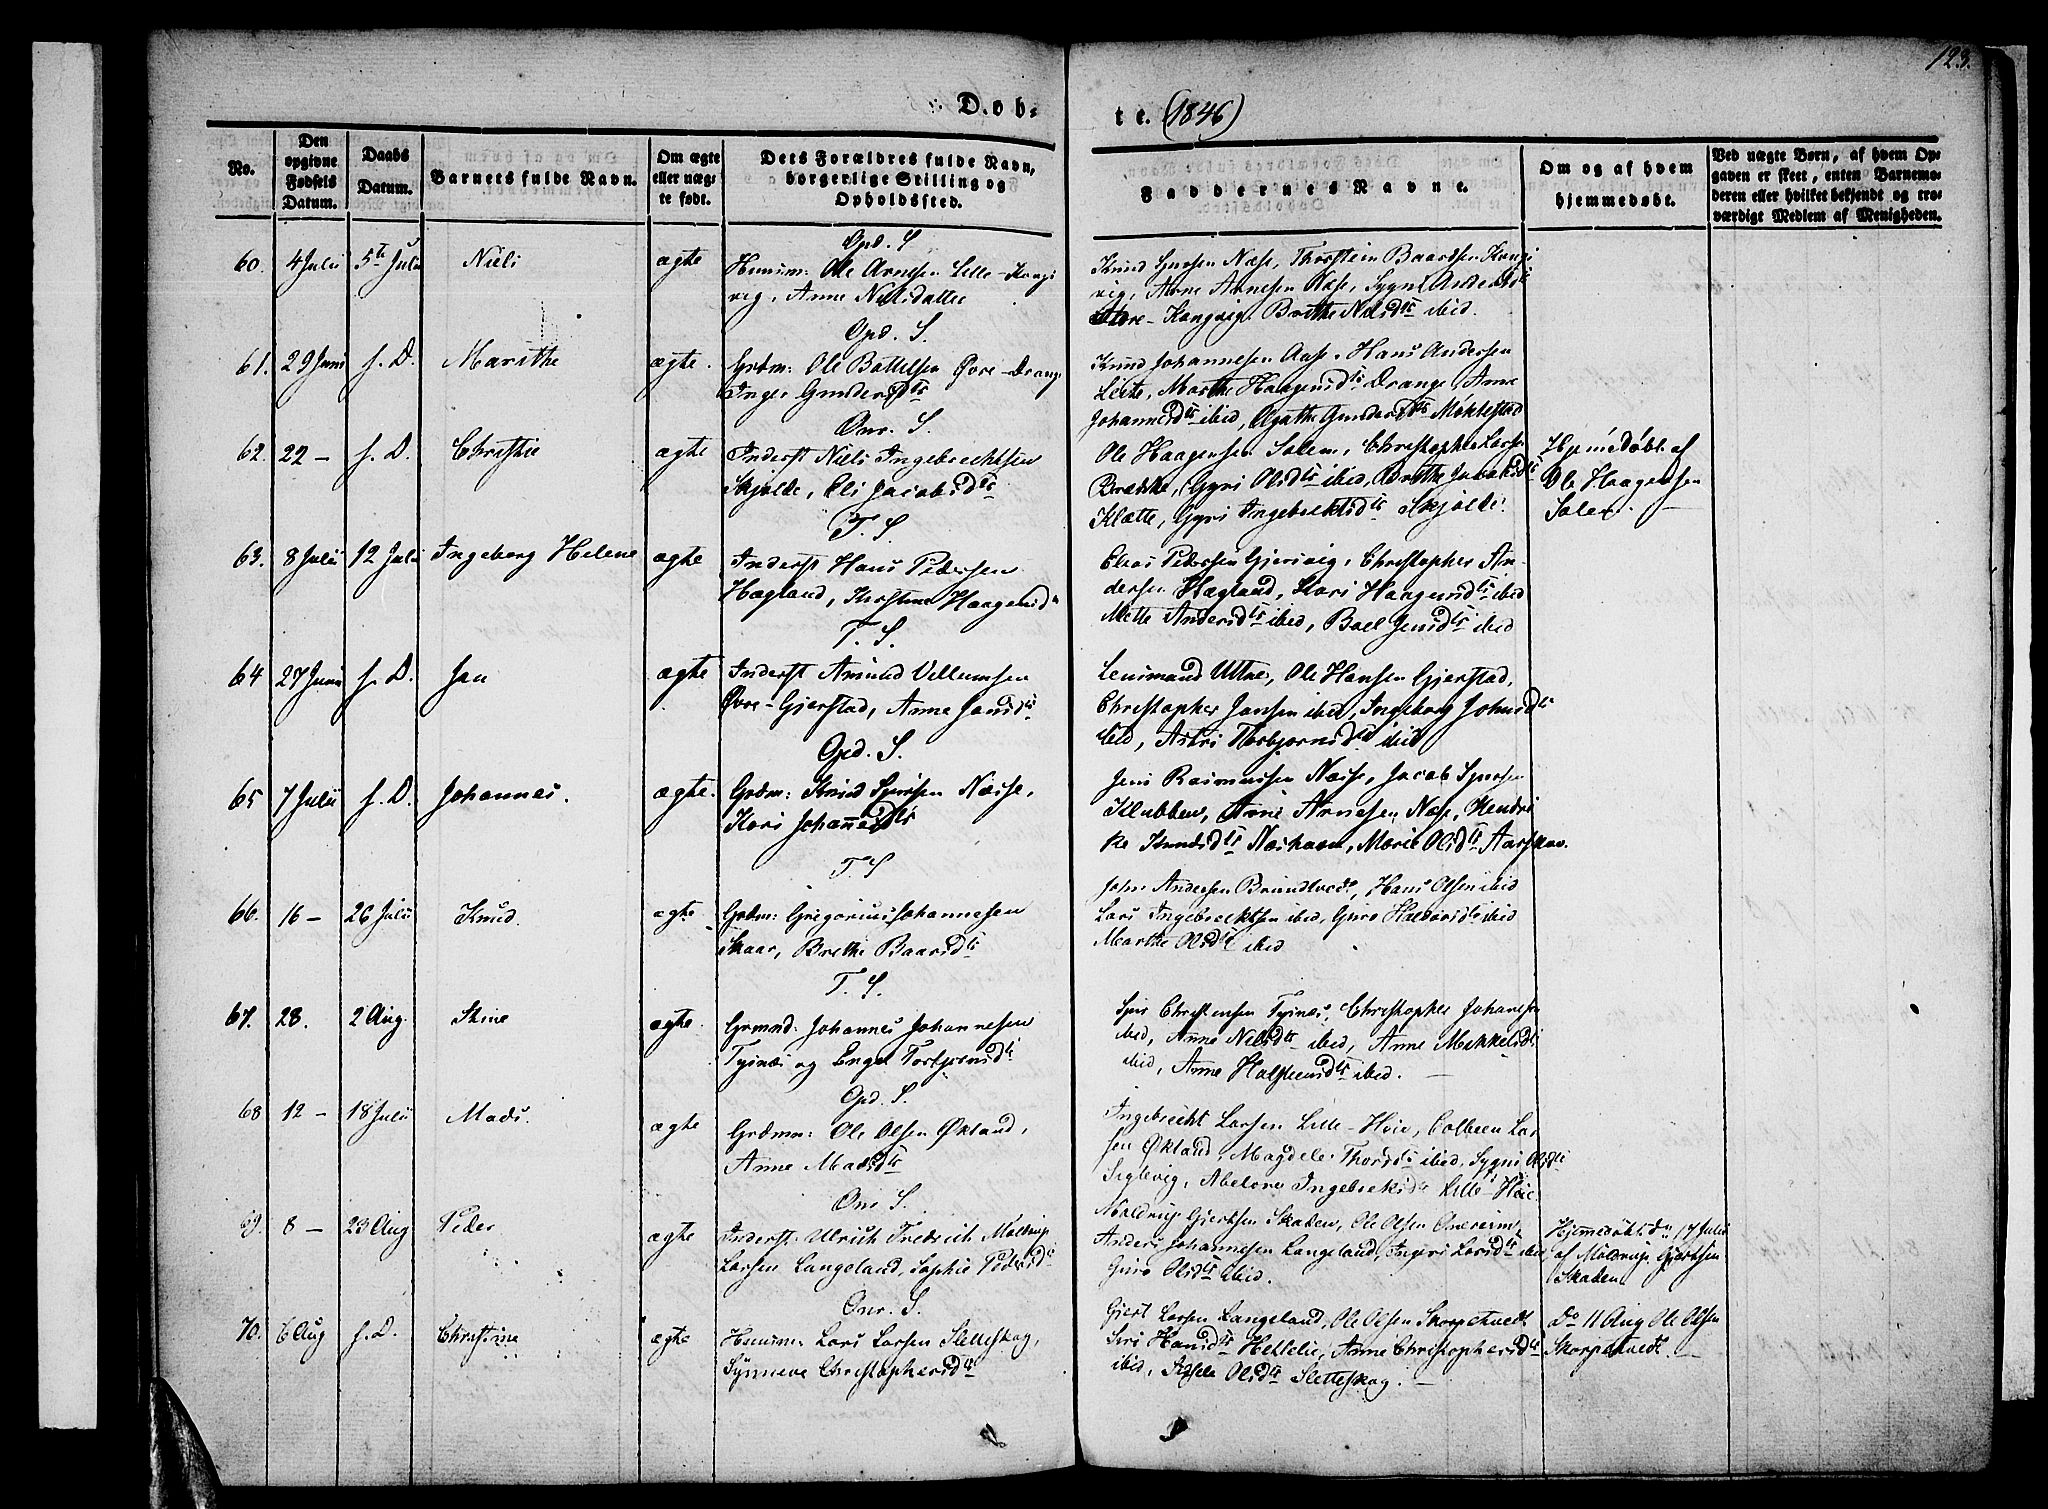 123.
Døb-
te. (1846)
No.
Den opgivne Fødsels Datum.
Daabs Datum.
Barnets fulde Navn.
Om ægte eller uægte født.
Dets Forældres fulde Navn, borgerlige Stilling og Opholdssted.
Faddernes Navne.
Om og af hvem hjemmedøbt.
Ved uægte Børn, af hvem Opgaven er skeet, enten Barnemoderen eller hvilket bekjendt og troværdigt Medlem af Menigheden.
Opd. S
60. 4 Julii 5te Julii Niels ægte
Huusm: Ole Arnesen Lille-Kongs
vig, Anne Nielsdatter
Knud Sjursen Næse, Thorstein Baardsen Kongs
vig, Arne Arnesen Næse, Sygni Andersdtr
Store-Kongvig, Brithe Nielsdtr ibid.
Opd. S.
61. 29 Juni f. D. Marithe ægte.
Grdm: Ole Bottelsen Øvre-Drange
Inger Gundersdtr
Knud Johannesen Aase, Hans Andersen
Leite, Marthe Haagensdtr Drange, Anne
Johannesdtr ibid, Agathe Gundersdtr Møkkestad
Onr. S.
62. 22 - f. D. Christie ægte
Inderst Niels Ingebrechtsen
Skjolde, Eli Jacobsdtr
Ole Haagensen Solem, Christopher Larsen
Brædske, Gyri Olsdtr ibid, Brithe Jacobsdtr
Klætte, Gyri Ingebrektsdtr Skjolde.
Hjemedøbt af
Ole Haagensen
Solem.
T. S.
63. 8 Julii 12 Julii Ingeborg Helene ægte
Inderst Hans Pedersen
Hagland, Kirstine Haagensdtr
Claus Pedersen Gjersvig, Christopher An-
dersen Hægland, Kari Haagensdtr ibid
Mette Andersdtr ibid, Boel Jensdtr ibid
T. S.
64 27 Juni f. D. Jan ægte
Inderst Amund Villumsen
Øvre-Gjerstad, Anne Jansdtr
Lensmand Uttne, Ole Hansen Gjerstad,
Christopher Jansen ibid, Ingeborg Johnsdtr
ibid, Astri Thorbjørnsdtr ibid
Opd. S.
65 7 Julii f. D. Johannes. ægte.
Grdm: Knud Sjursen Næse,
Kari Johannesdtr
Jens Rasmussen Næse, Jacob Sjursen
Klubben, Arne Arnesen Næse, Hendri
ke Knudsdtr Næshavn, Marie Olsdtr
T. S
66. 16 - 26 Julii Knud. ægte
Grdm: Gregorius Johannesen
Skaar, Brethe Baarsdtr
John Andersen Brundtved, Hans Olsen ibid
Lars Ingebrecktsen ibid, Guro Haldorsdtr ibid
Marthe Olsdtr ibid
T. S.
67. 28. 2 Aug. Stine ægte
Grmnd: Johannes Johannesen
Tysnæs og Engel Torbjørnsdtr
Sjur Christensen Tysnæs, Christopher Johanesen
ibid, Anne Nielsdtr ibid, Anne Mikkelsdtr
ibid, Anne Halsteensdtr ibid.
Opd. S.
68 12 - 18 Julii Mads. ægte
Grdmn: Ole Olsen Økland,
Anne Madsdtr
Ingebrecht Larsen Lille-Hoie, Colbeen Lar
sen Økland, Magdele Thorsdtr ibid, Sygni Olsdtr
Siglevig, Abelone Ingebrektsdtr Lille-Hoie
Onr S.
69. 8 - 23 Aug Peder ægte
Inderst: Ulrich Fredrich Moldrup
Larsen Langeland, Sophie Pedersdtr
Moldrup Gjertsen Skaden, Ole Olsen Onereim,
Anders Johannesen Langeland, Ingeri Larsdtr ibid
Guro Olsdtr ibid.
Hjemmedøbt dn 17 Julii
af Moldrup Gjertsen
Skaden
Onr. S.
70. 6 Aug f. D. Christine ægte
Huusm: Lars Larsen Sletteskog,
Synneve Christophersdtr
Gjert Larsen Langeland, Ole Olsen Skorpetvedt
Siri Hansdtr Hettelie, Anne Christophersdtr
ibid, Sissele Olsdtr Sletteskog.
Do 11 Aug Ole Olsen
Skorpetvedt.